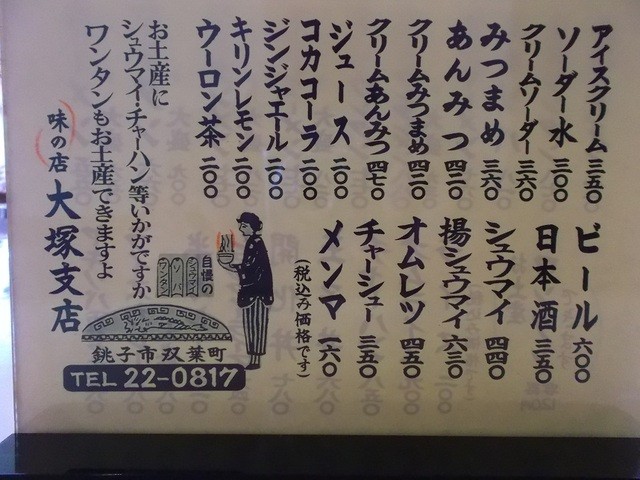 アイスクリーム 三五〇
ソーダー水 三〇〇
クリームソーダー 三六〇
みつまめ 三六〇
あんみつ 四二〇
クリームみつまめ 四二〇
クリームあんみつ 四七〇
ジュース 二〇〇
コカコーラ 二〇〇
ジンジャエール 二〇〇
キリンレモン 二〇〇
ウーロン茶 二〇〇
ビール 六〇〇
日本酒 三五〇
シュウマイ 四四〇
揚シュウマイ 六三〇
オムレツ 四五〇
チャーシュー 三五〇
メンマ 一六〇
(税込み価格です)
お土産に
シュウマイ・チャーハン等いかがですか
ワンタンもお土産できますよ
自慢の
シュウマイ
ソバ
ワンタン
味の店 大塚支店
銚子市双葉町
TEL 22-0817